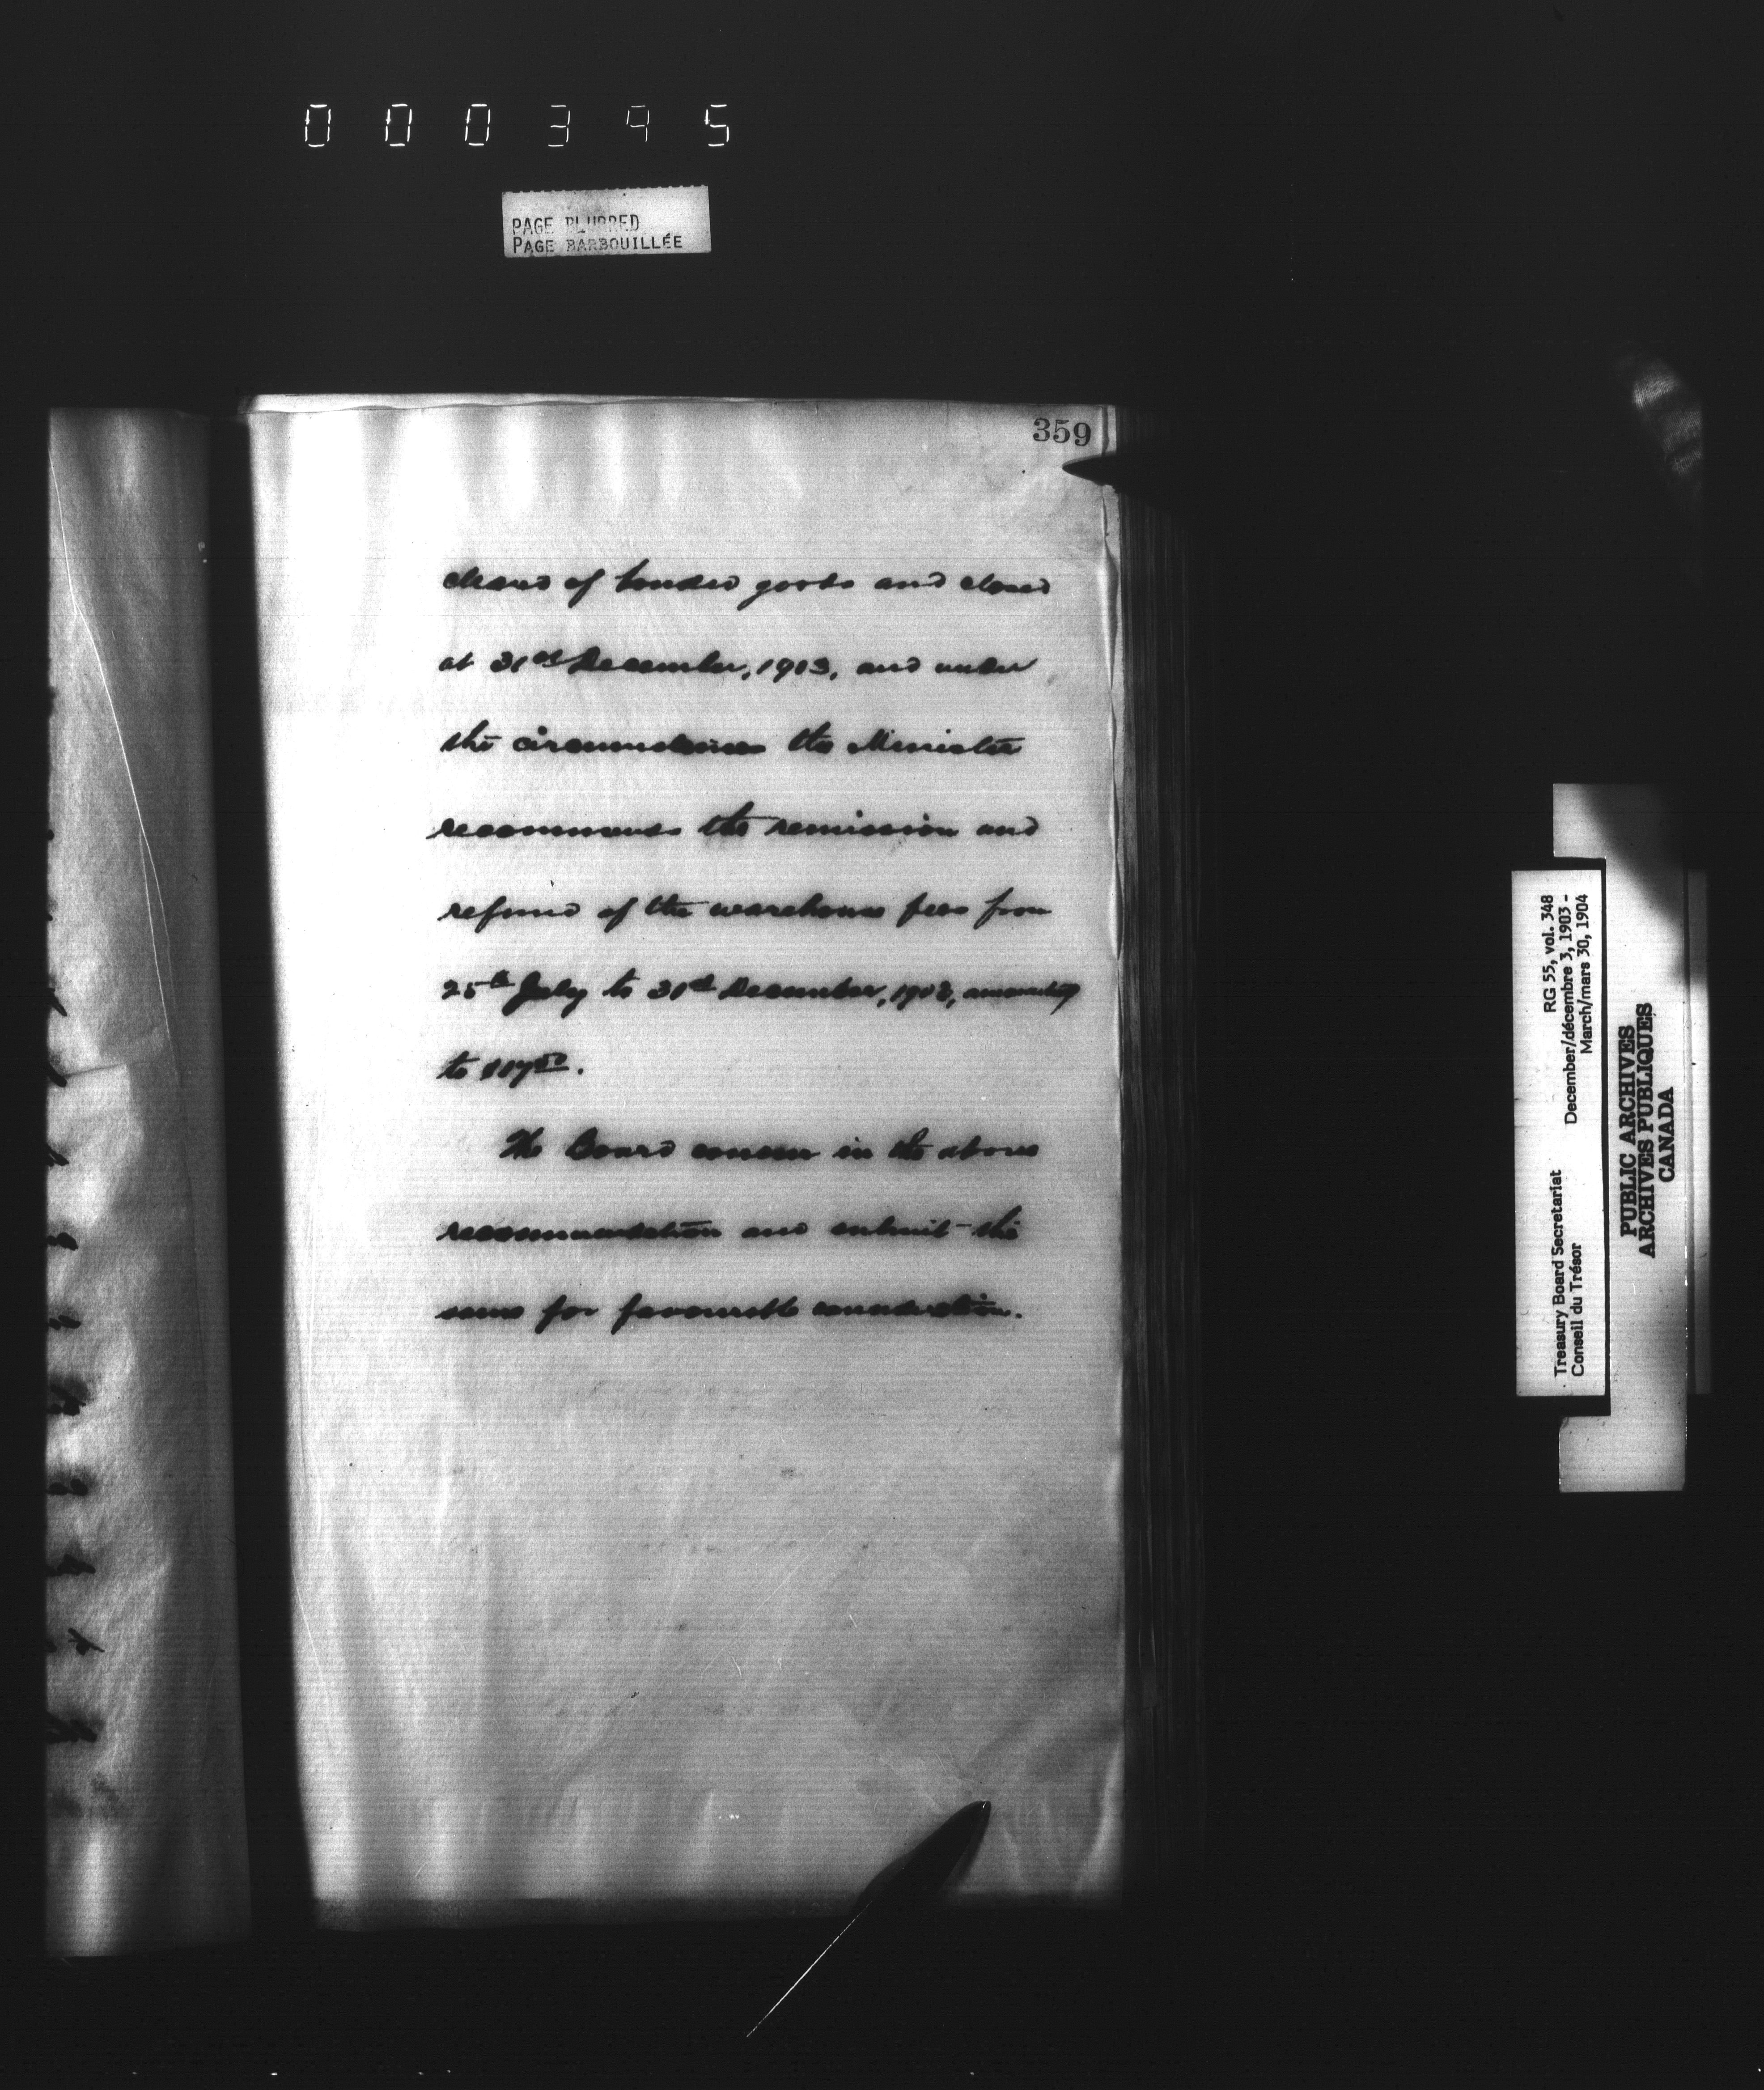 000395
PAGE BLURRED
PAGE BARBOUILLÉE
359
cleared of bonded goods and closed
at 31st December, 1903, and under
the circumstances the Minister
recommends the remission and
refund of the warehouse fees from
25th July to 31st December, 1903, amounting
to
The Board concur in the above
recommendation and submit the
same for favourable consideration.
RG 55, vol. 348
Treasury Board Secretariat December/décembre 3, 1903 -
Conseil du Trésor March/mars 30, 1904
PUBLIC ARCHIVES
ARCHIVES PUBLIQUES
CANADA